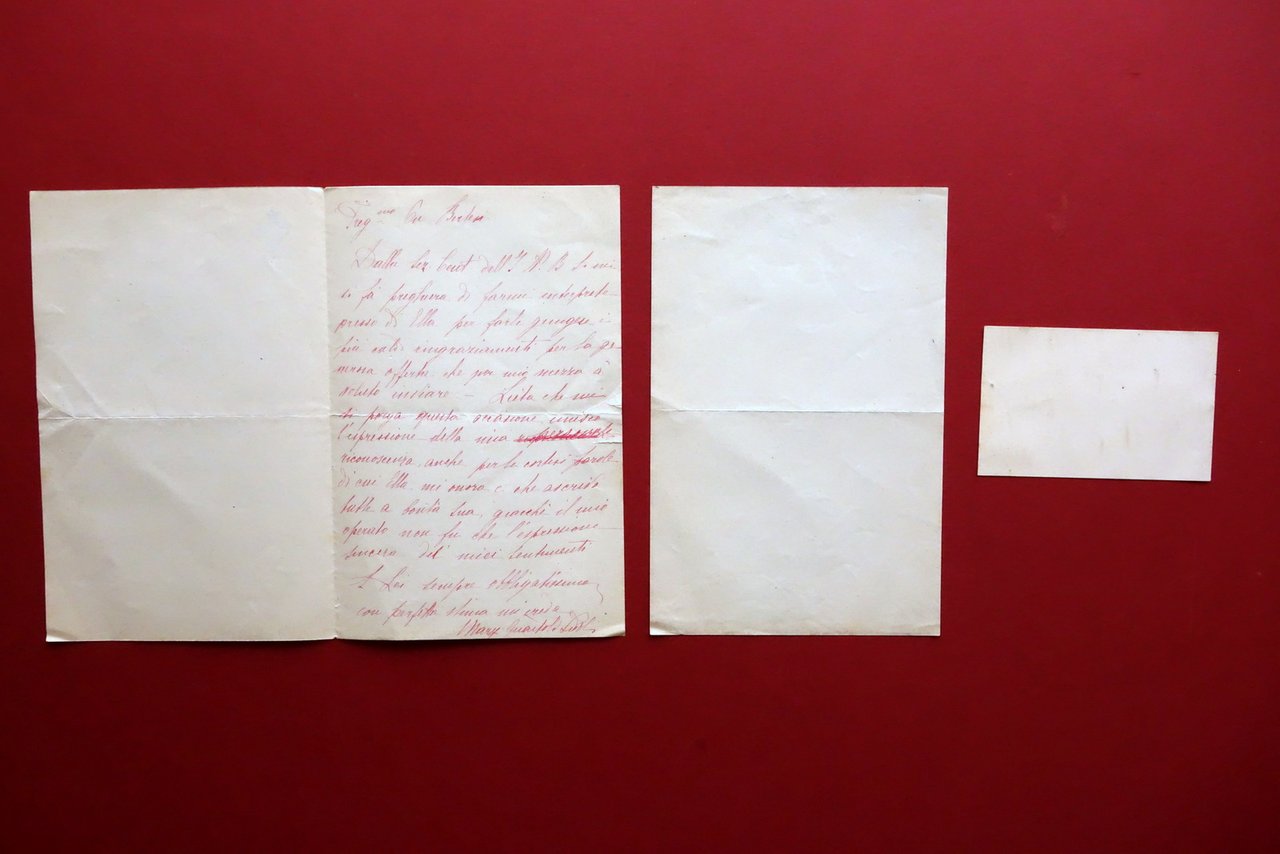 Preg.mo
Dalla Sez dell'I. N. B. 
si fà preghiera di farmi interprete
presso di Ella per farle giungere i
più caldi ringraziamenti per la ge-
nerosa offerta che per mio mezzo à
voluto inviare – Lieta che mi
si porga questa occasione unisco
l'espressione della mia
riconoscenza, anche per le cortesi parole
di cui Ella mi onora e che ascrivo
tutte a bontà sua, giacchè il mio
operato non fu che l'espressione
sincera dei miei sentimenti
A Lei sempre obbligatissima
con perfetta stima mi creda
Mary